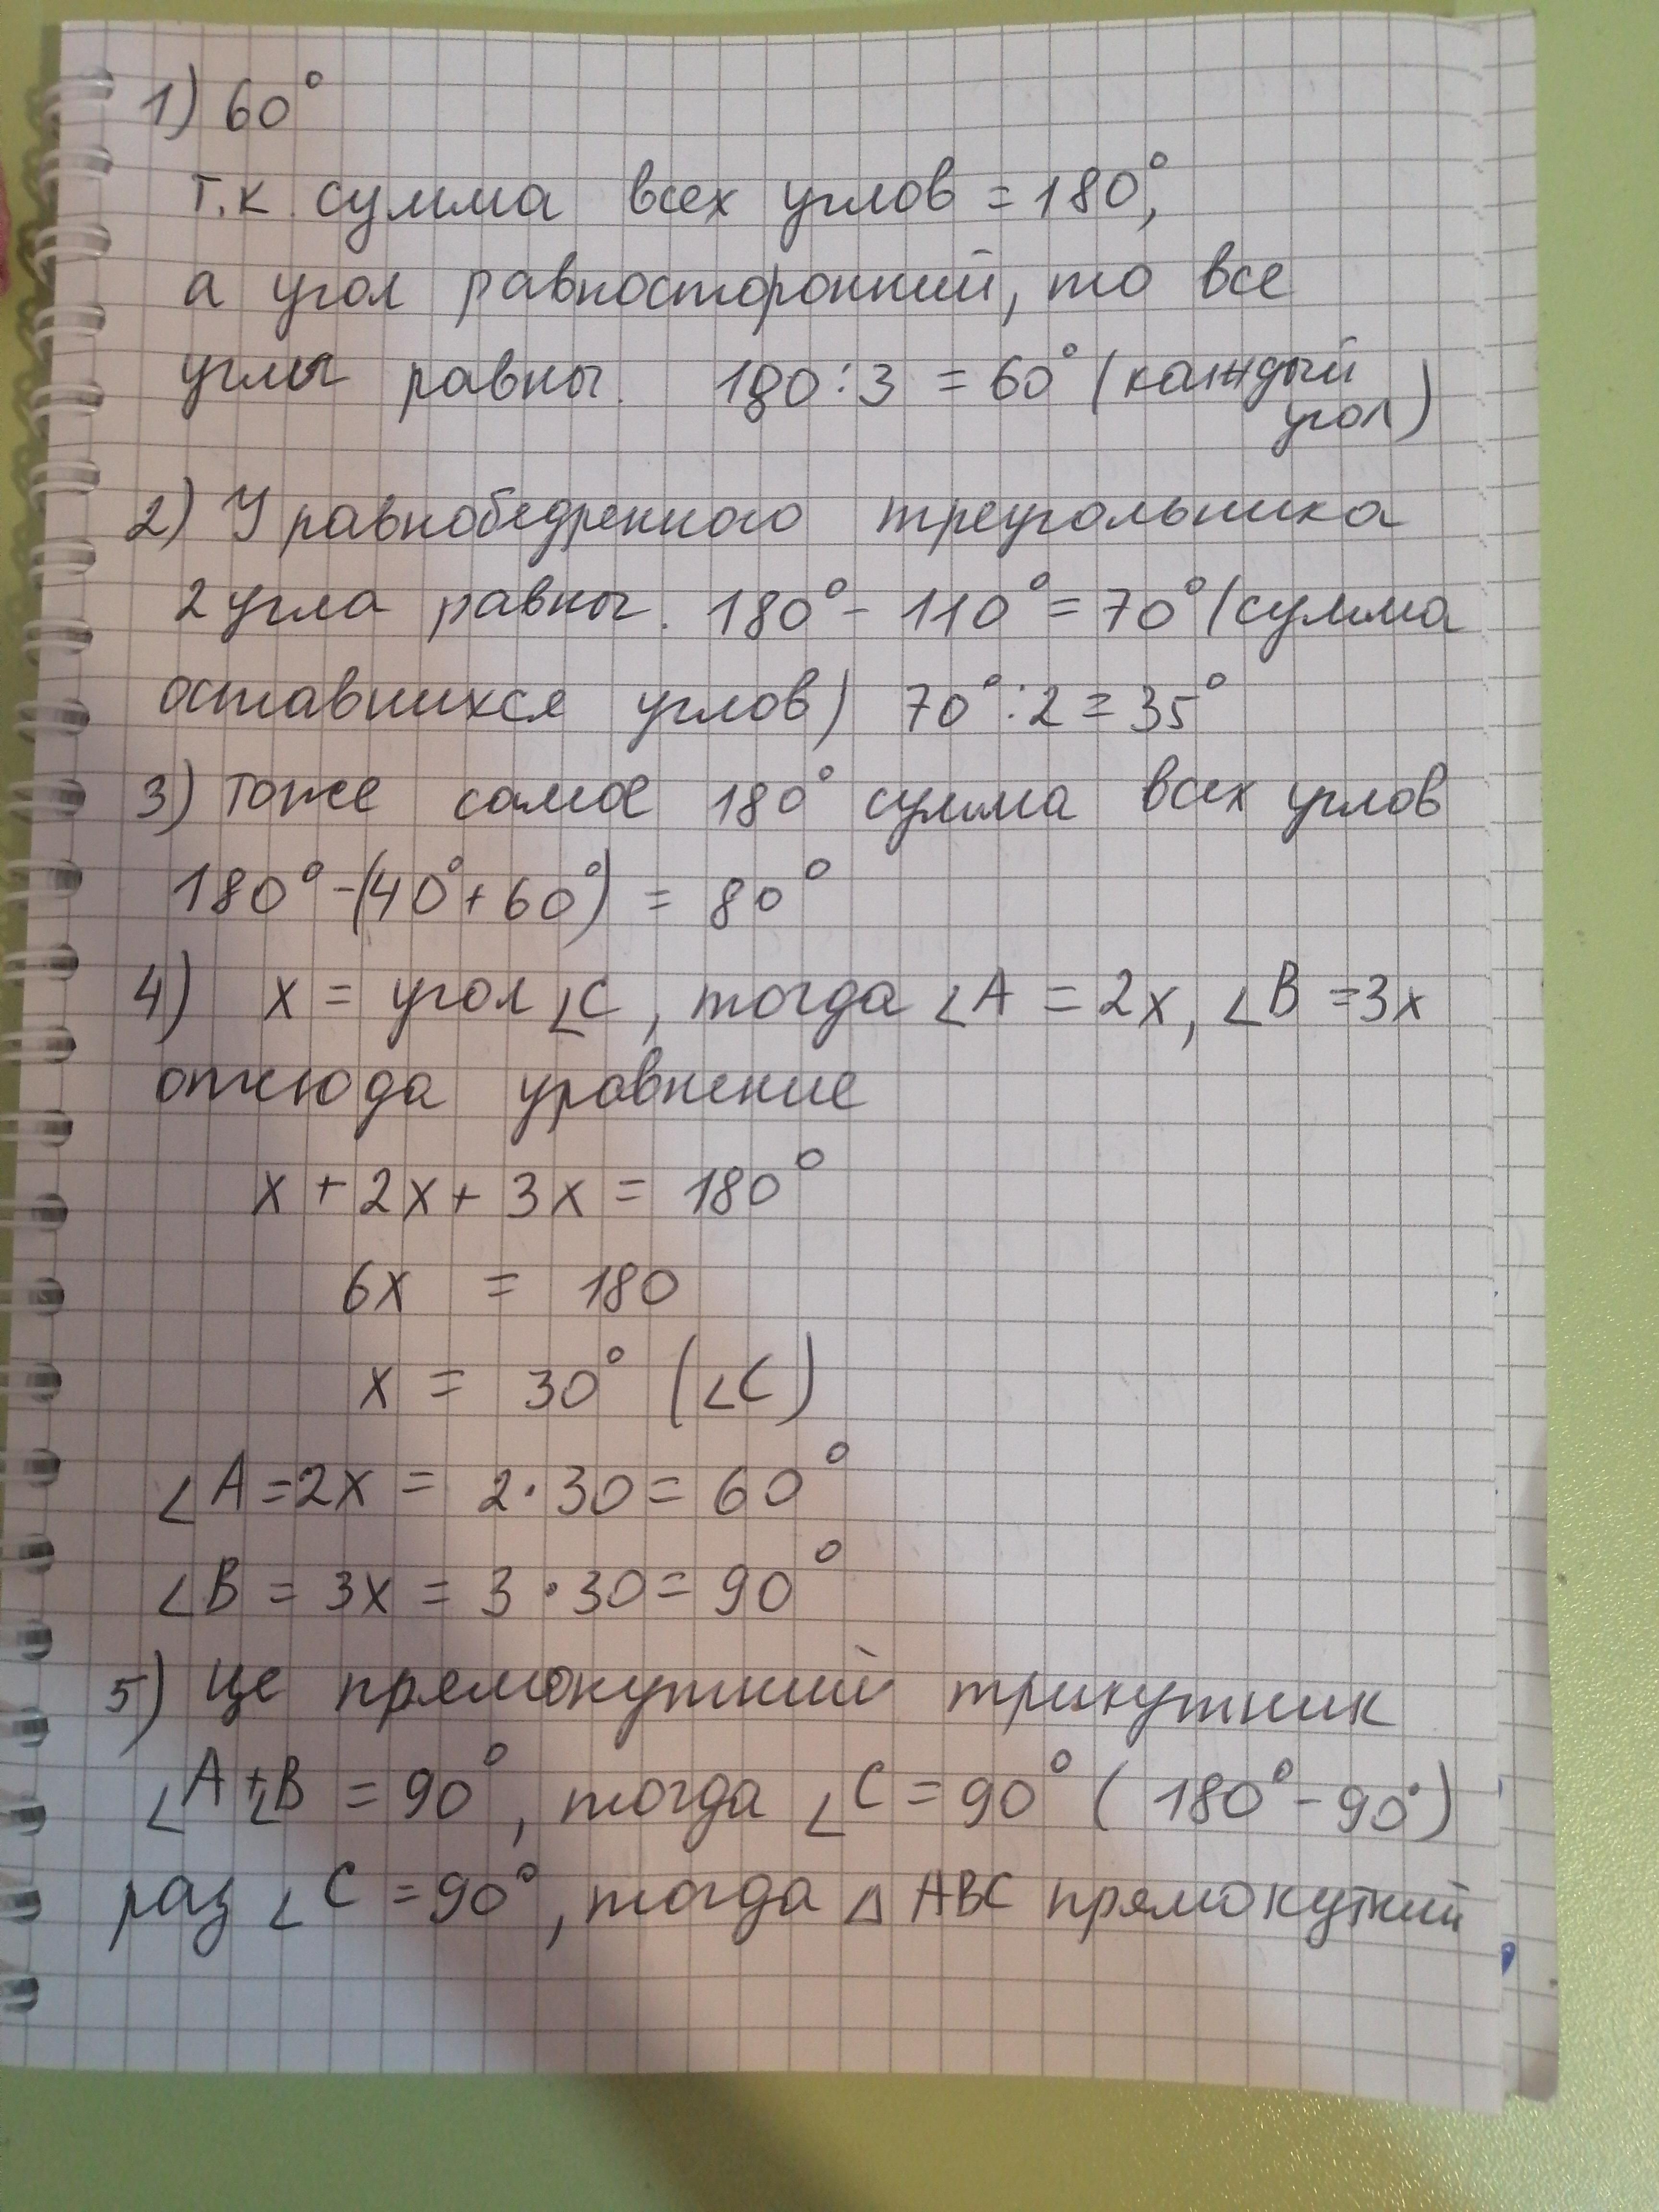 1) 60°
т.к. сумма всех углов = 180°,
а угол равносторонний, то все
углы равны. 180 : 3 = 60° (каждый
угол)
2) У равнобедренного треугольника
2 угла равны. 180° - 110° = 70° (сумма
оставшихся углов) 70° : 2 = 35°
3) Тоже самое 180° сумма всех углов
180° - (40° + 60°) = 80°
4) x = угол ∠C, тогда ∠A = 2x, ∠B = 3x
отсюда уравнение
x + 2x + 3x = 180°
6x = 180
x = 30° (∠C)
∠A = 2x = 2 · 30 = 60°
∠B = 3x = 3 · 30 = 90°
5) Це прямокутний трикутник
∠A + ∠B = 90°, тогда ∠C = 90° (180° - 90°)
раз ∠C = 90°, тогда △ ABC прямокутний